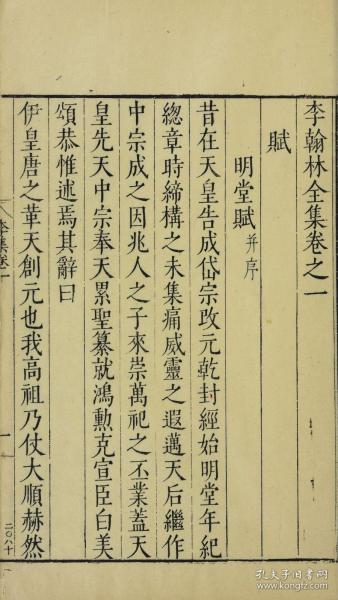 李翰林全集卷之一
賦
明堂賦并序
昔在天皇告成岱宗改元乾封經始明堂年紀
緫章時締構之未集痛威靈之遐邁天后繼作
中宗成之因兆人之子來崇萬祀之丕業蓋天
皇先天中宗奉天累聖纂就鴻勲克宣臣白美
頌恭惟述焉其辭曰
伊皇唐之革天創元也我高祖乃仗大順赫然
李集卷一
一
二〇八十
孔夫子旧书网